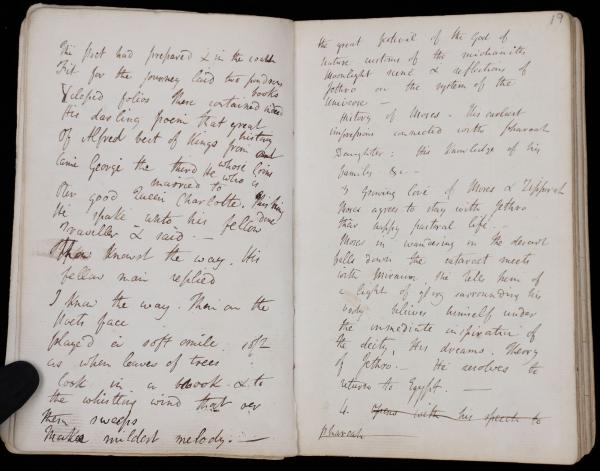 The poet had prepared & in the coach
Fit for the journey laid two pondrous
books
Ycleped folios These contained indeed
His darling poem that great
history
Of Alfred best of Kings from
whose loins
Came George the third He who is
married to
Our good Queen Charlotte. This being
done
He spake unto his fellow
traveller & said. —
Thou knowst the way. His
fellow man replied
I know the way. Then on the
Poets face
play'd a soft smile soft
as when leaves of trees
Look in a brook & to
the whistling wind that oer
them sweeps
Make mildest melody. —
19
the great festival of the God of
Nature customs of the midianites
Moonlight scene & reflections of
Jethro on the system of the
Universe —
History of Moses. His earliest
impressions connected with pharaoh
Daughter: His knowledge of his
family &c —
3 Growing love of Moses & Zipporah
Moses agrees to stay with Jethro
their happy pastoral life. —
Moses in wandering in the desert
falls down the cataract meets
with Miriam. She tells him of
a light of glory surrounding his
body believes himself under
the immediate inspiration of
the deity. His dreams. Theory
of Jethro. — He resolves to
return to Egypt. —
4. Opens with his speech to
pharoah